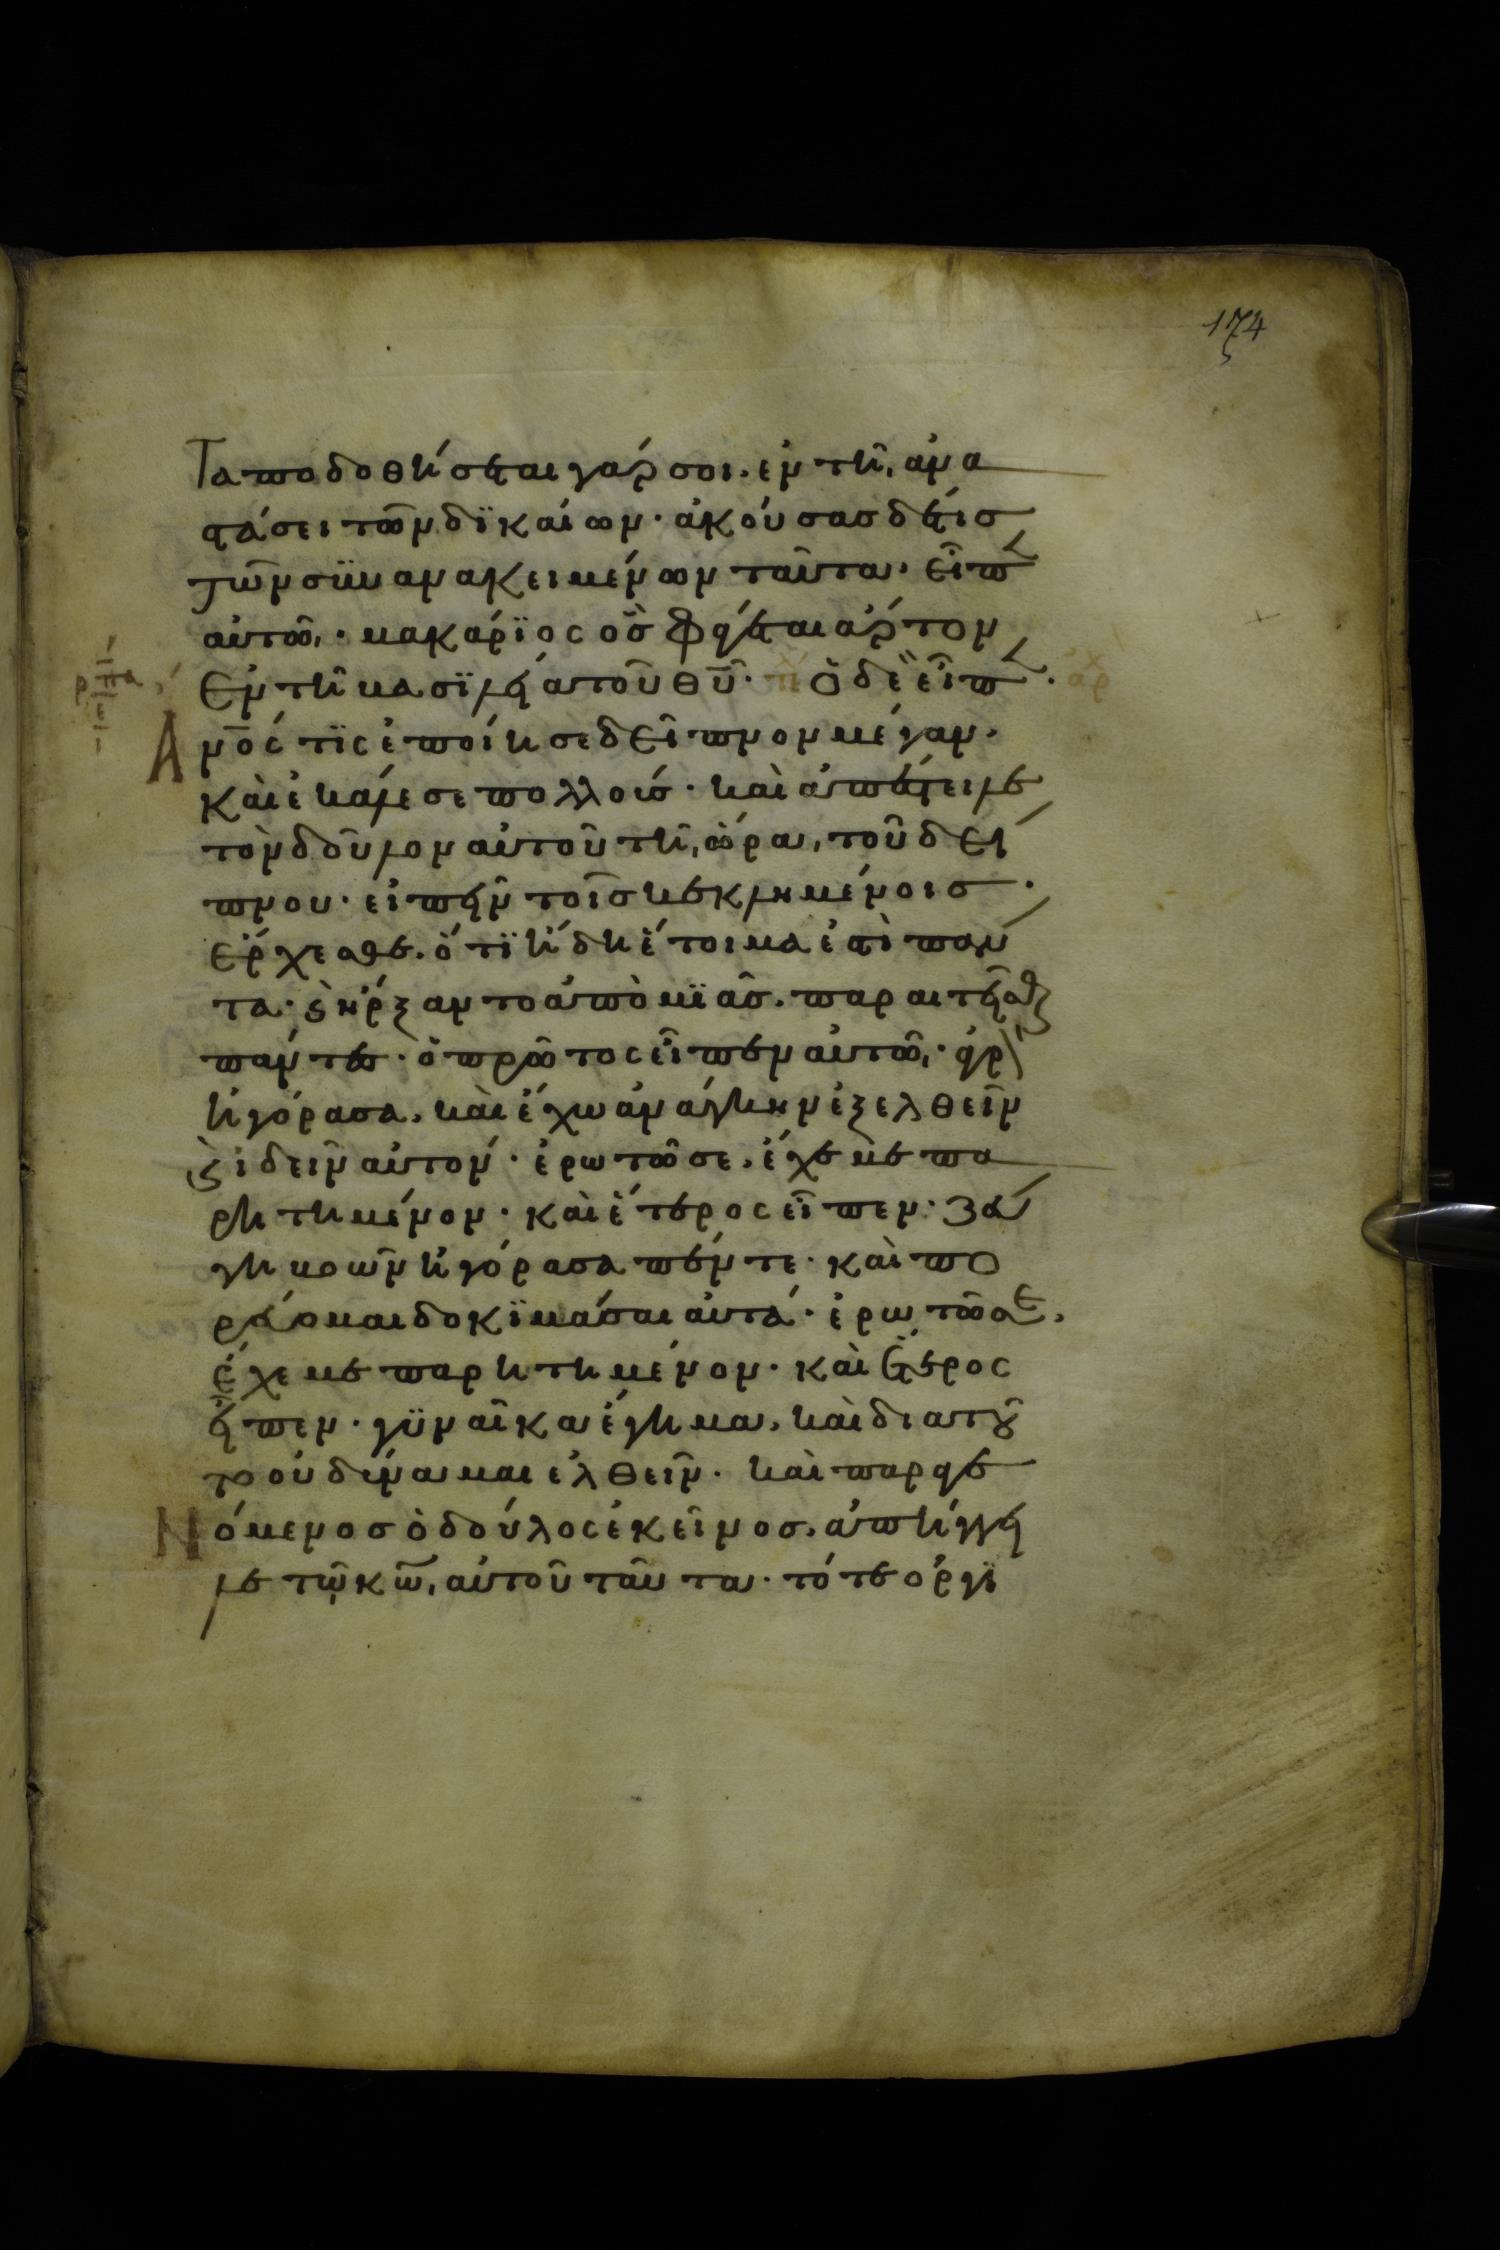 174
Ταποδοθήσεται γάρ σοι. ἐν τῆ, ἀνα
στάσει τῶν δϊκαίων· ἀκούσασ δέ τισ
τῶν σϋνανακειμένων ταῦτα· εἶπ
αὐτῶ,· μακάρϊος ὃσ φάγεται ἄρτον
Ἐν τῆ βασϊλεία τοῦ θῦ· Ὁ δὲ εἶπ·
ανος τϊς ἐποίησε δεῖπνον μέγαν·
καὶ ἐκάλεσε πολλούσ· καὶ ἀπέστειλε
τὸν δοῦλον αὐτοῦ τῆ, ὥρα, τοῦ δεί
πνου· εἰπεῖν τοῖσ κεκλημένοισ·
ἔρχεσθε. ὅτϊ ἤδη ἕτοιμα ἐστὶ πάν
τα· ϛ ἤρξαντο ἀπὸ μϊᾶσ. παραιτεῖσθαι
πάντεσ· ὁ πρῶτος εἶπεν αὐτῶ,· ἀγρὸν
ἠγόρασα. καὶ ἔχω ἀνάγκην ἐξελθεῖν
ϛ ἰδεῖν αὐτόν· ἐρωτῶ σε. ἔχε με πα
ρητημένον· καὶ ἕτερος εἶπεν· ζεύ
γη βοῶν ἠγόρασα πέντε· καὶ πο
ρεύομαι δοκϊμάσαι αὐτά· ἐρωτῶ σε.
ἔχε με παρητημένον· καὶ ἕτερος
εἶπεν· γϋναῖκα ἔγημα. καὶ διατοῦ
το οὐ δύναμαι ἐλθεῖν· καὶ παραγε
Νόμενοσ ὁ δούλος ἐκεῖνοσ. ἀπήγγει
λε τῶ κῶ, αὐτοῦ ταῦτα· τότε ὀργϊ